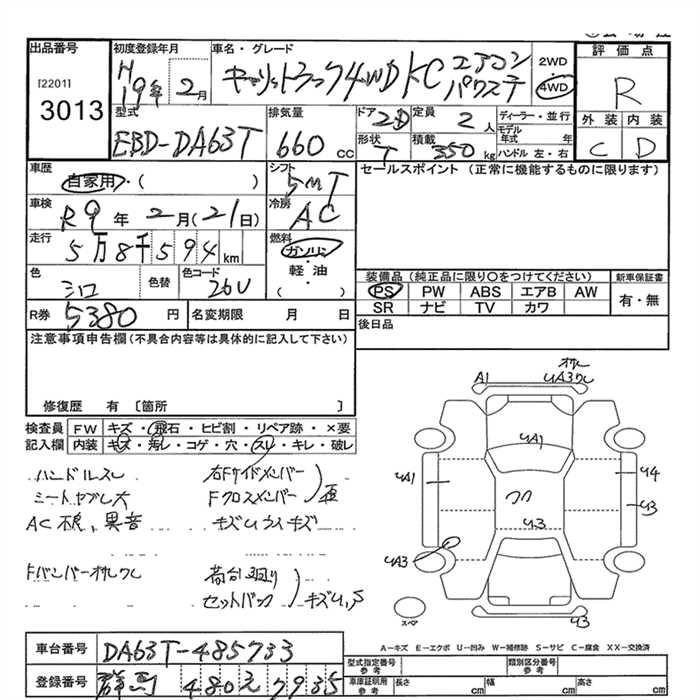 出品番号
[2201]
3013
初度登録年月
H19年 2月
車名・グレード
キャリイトラック4WD KC エアコン パワステ
2WD
4WD
評価点
R
外装 内装
C D
型式
EBD-DA63T
排気量
660 cc
ドア 2D
形状 T
定員 2人
積載 350kg
ディーラー・並行
モデル年式 年
ハンドル 左・右
車歴
自家用・( )
シフト
5MT
セールスポイント(正常に機能するものに限ります)
車検
R9年 2月(21日)
冷房
AC
走行
5万8千594km
燃料
ガソリン
軽・油
( )
色
シロ
色替
色コード
26U
装備品(純正品に限り○をつけてください)
PS PW ABS エアB AW
SR ナビ TV カワ
新車保証書
有・無
R券 5380円
名変期限 月 日
後日品
注意事項申告欄(不具合内容等は具体的に記入して下さい)
修復歴 有 [箇所 ]
検査員記入欄
FW キズ・飛石・ヒビ割・リペア跡・×要
内装 キズ・汚レ・コゲ・穴・スレ・キレ・破レ
ハンドルスレ
シートヤブレ大
AC不良、異音
右Fサイドメンバー
Fクロスメンバー
キズUサビキズ
Fバンパーオサレワレ
荷台廻り
セットバック
キズU,S
A1
UA3ワレ
UA1
UA1
U4
U3
U3
UA3
U3
スペア
A-キズ E-エクボ U-凹み W-補修跡 S-サビ C-腐食 XX-交換済
車台番号
DA63T-485733
登録番号
群馬 480え7935
型式指定番号 参考
類別区分番号 参考
車庫証明用 参考
長さ cm
幅 cm
高さ cm